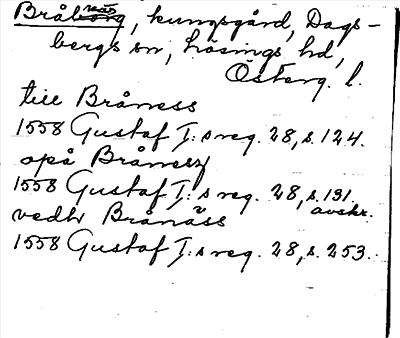 Bråborg, kungsgård, Dags-
näs
bergs sn, Lösings hd,
Österg. l.
till Bråness
1558 Gustaf I:s reg. 28, s. 124.
opå Brånesz
1558 Gustaf I:s reg. 28, s. 131.
avskr.
vedh Brånäss
1558 Gustaf I:s reg. 28, s. 253.